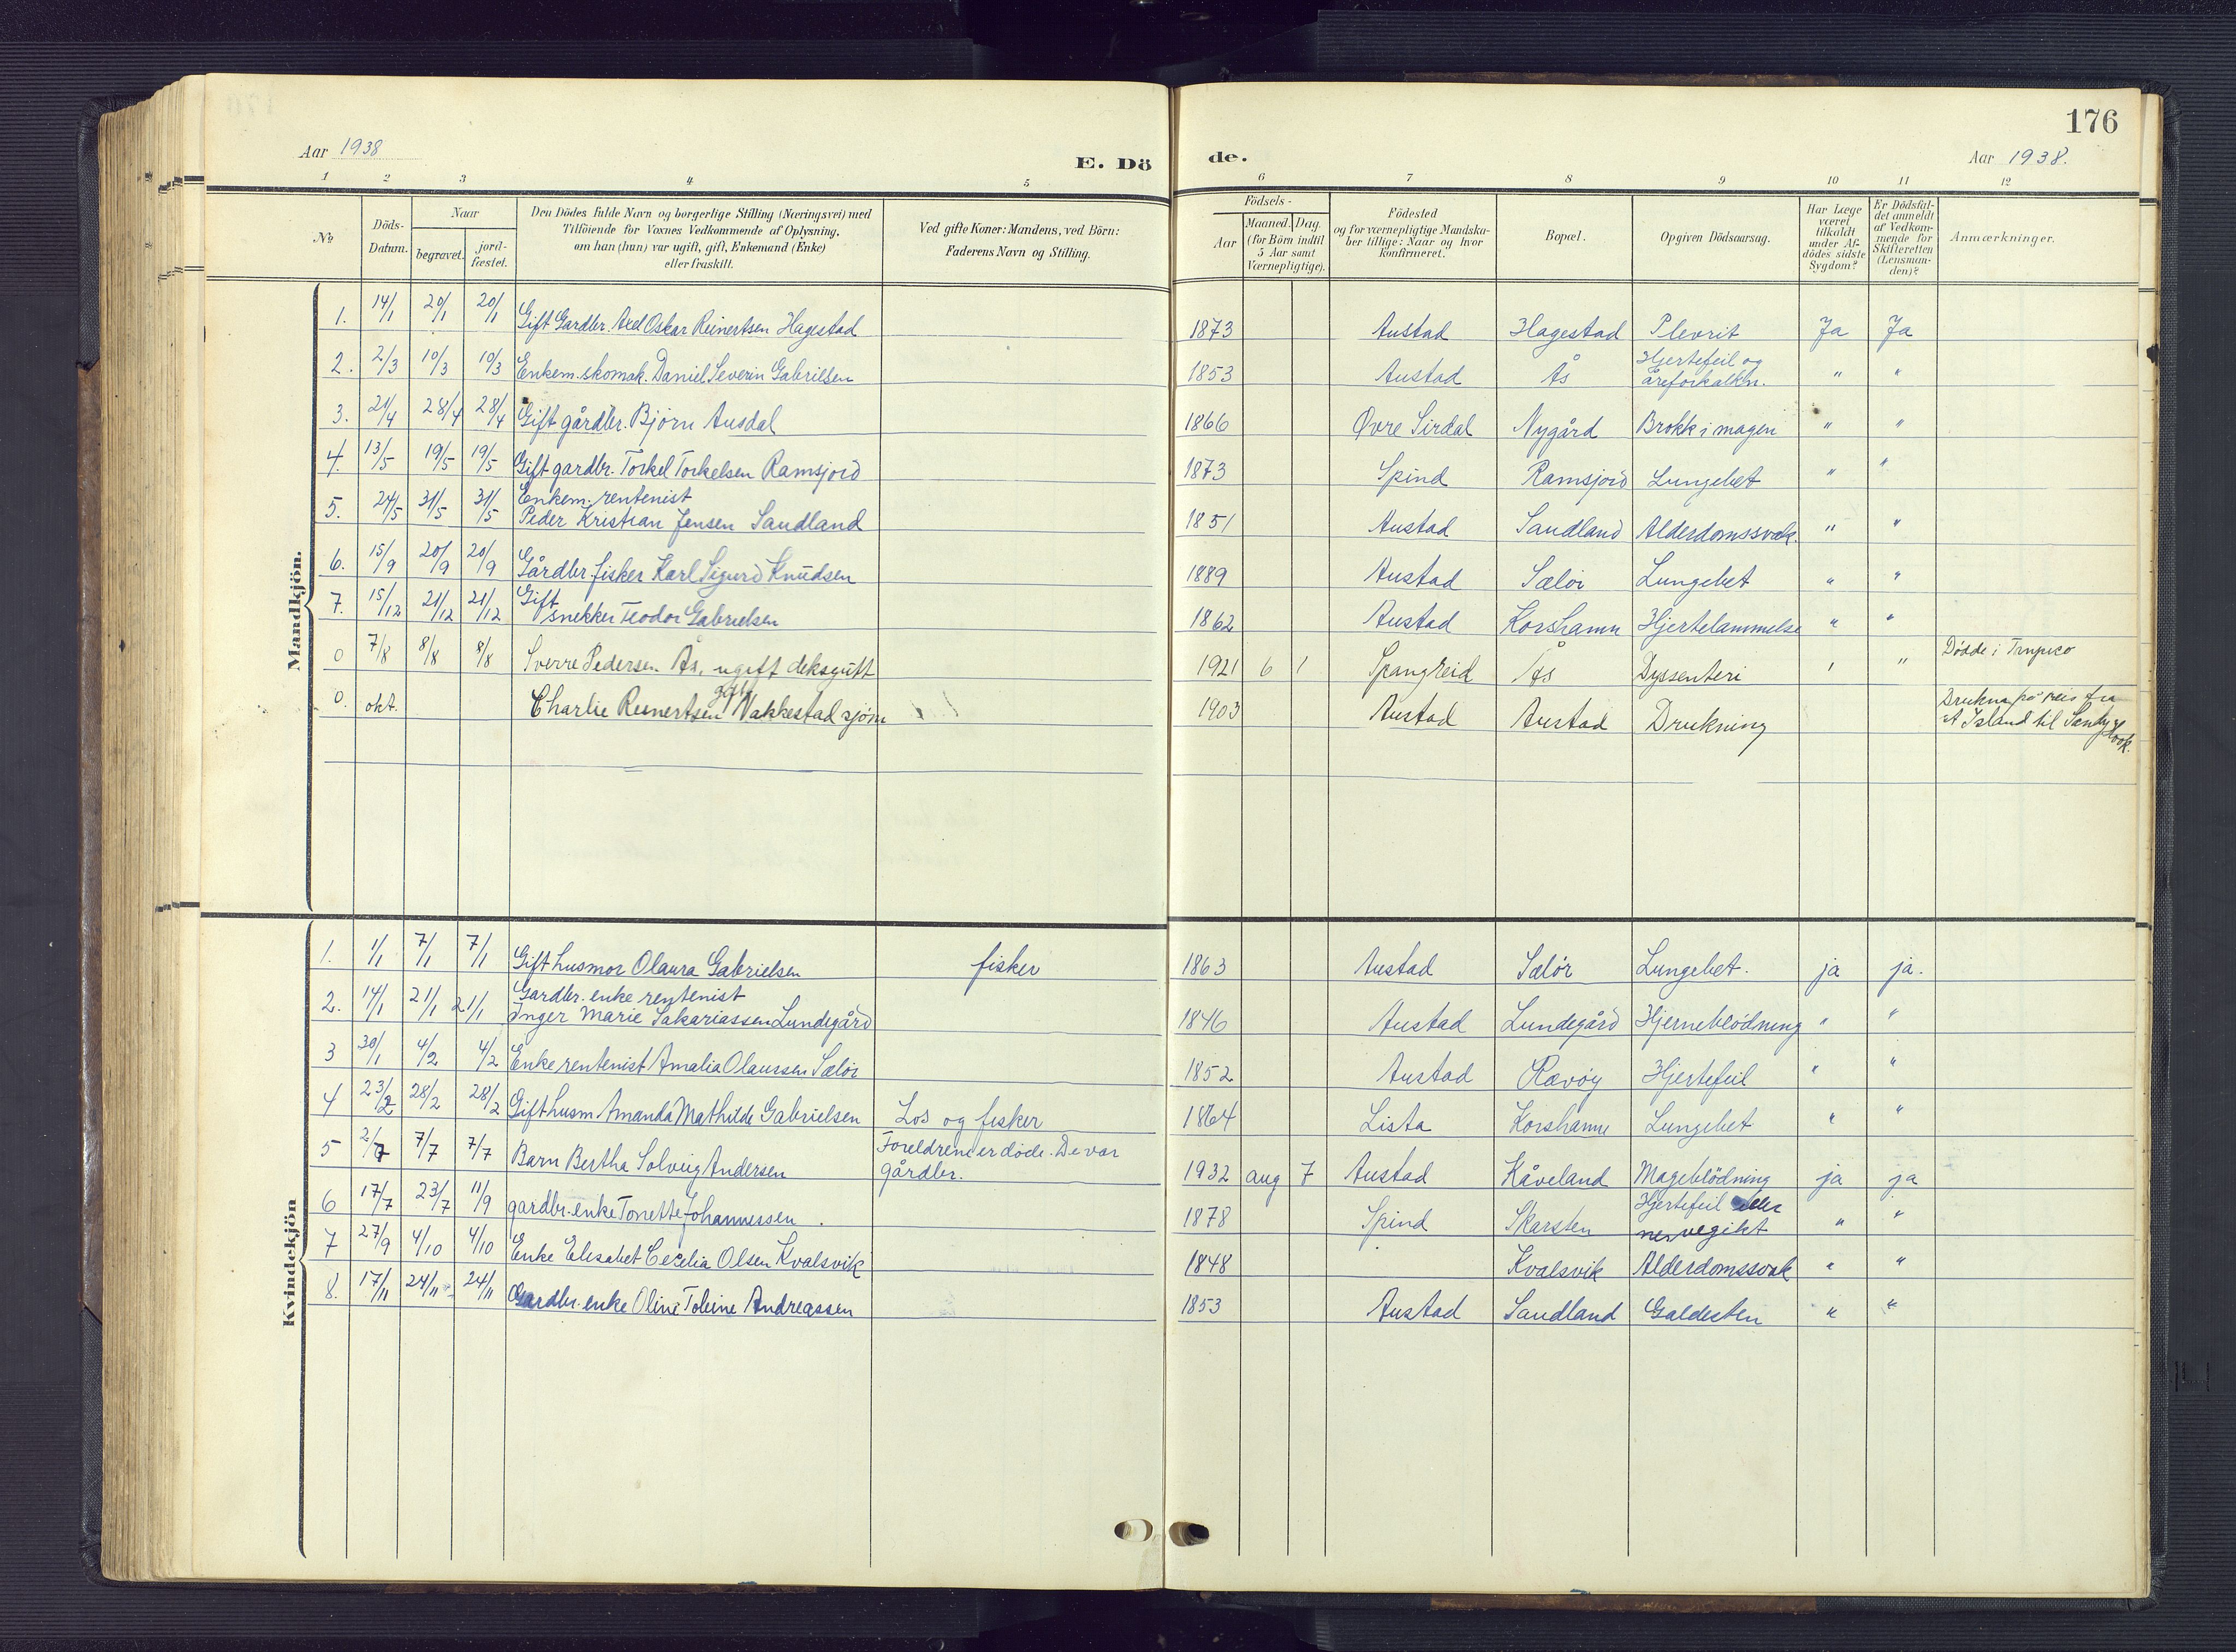 176
Aar 1938
E. Dö de.
Aar 1938.
1 2 3 4 5 6 7 8 9 10 11 12
No
Döds-
Datum.
Naar
begravet.
jord-
fæstet.
Den Dödes fulde Navn og borgerlige Stilling (Næringsvei) med
Tilföiende for Voxnes Vedkommende af Oplysning,
om han (hun) var ugift, gift, Enkemand (Enke)
eller fraskilt.
Ved gifte Koner: Mandens, ved Börn:
Faderens Navn og Stilling.
Födsels-
Aar
Maaned. Dag.
(for Börn indtil
5 Aar samt
Værnepligtige).
Födested
og for værnepligtige Mandska-
ber tillige: Naar og hvor
konfirmeret.
Bopæl.
Opgiven Dödsaarsag.
Har Læge
været
tilkaldt
under Af-
dödes sidste
Sygdom?
Er Dödsfal-
det anmeldt
af Vedkom-
mende for
Skifteretten
(Lensman-
den)?
Anmærkninger.
Mandkjön.
1. 14/1 20/1 20/1 Gift Gardbr. Axel Oskar Reinertsen Hagestad 1873 Austad Hagestad Plevrit Ja Ja
2. 2/3 10/3 10/3 Enkem. skomak. Daniel Severin Gabrielsen 1853 Austad Ås Hjertefeil og
åreforkalkn. " "
3. 21/4 28/4 28/4 Gift gårdbr. Bjørn Ausdal 1866 Øvre Sirdal Nygård Brokk i magen " "
4. 13/5 19/5 19/5 Gift gardbr. Torkel Torkelsen Ramsjord 1873 Spind Ramsjord Lungebet " "
5. 24/5 31/5 31/5 Enkem. rentenist
Peder Kristian Jensen Sandland 1851 Austad Sandland Alderdomssvak. " "
6. 15/9 20/9 20/9 Gårdbr. fisker Karl Sigurd Knudsen 1889 Austad Sælør Lungebet " "
7. 15/12 21/12 21/12 Gift
snekker Teodor Gabrielsen 1862 Austad Korshamn Hjertelammelse " "
0 7/8 8/8 8/8 Sverre Pedersen Ås, ugift deksgutt 1921 6 1 Spangreid Ås Dyssenteri ' " Dødde i Tampico
0. okt. Charlie Reinertsen gift Vakkestad sjøm 1903 Austad Austad Drukning Drukna på reis fra
Island til Sandy Hook.
Kvindekjön
1. 1/1 7/1 7/1 Gift husmor Olaura Gabrielsen fisker 1863 Austad Sælør Lungebet. ja ja.
2. 14/1 21/1 21/1 Gardbr. enke rentenist
Inger Marie Sakariassen Lundegård 1846 Austad Lundegård Hjerneblödning " "
3 30/1 4/2 4/2 Enke rentenist Amalia Olaussen Sælör 1852 Austad Rævöy Hjertefeil " "
4 23/2 28/2 28/2 Gift husm Amanda Mathilde Gabrielsen Los og fisker 1864 Lista Korshamn Lungebet " "
5 2/7 7/7 7/7 Barn Bertha Solveig Andersen Foreldrene er døde. De var
gårdbr. 1932 aug 7 Austad Kåveland Mageblödning ja ja
6 17/7 23/7 11/9 gardbr. enke Tonette Johannessen. 1878 Spind Skarsten Hjertefeil eller
nervegikt " "
7 27/9 4/10 4/10 Enke Elisabet Cecelia Olsen Kvalsvik 1848 Kvalsvik Alderdomssvak " "
8. 17/11 24/11 24/11 Gardbr. enke Oline Toleine Andreassen 1853 Austad Sandland Galdesten " "